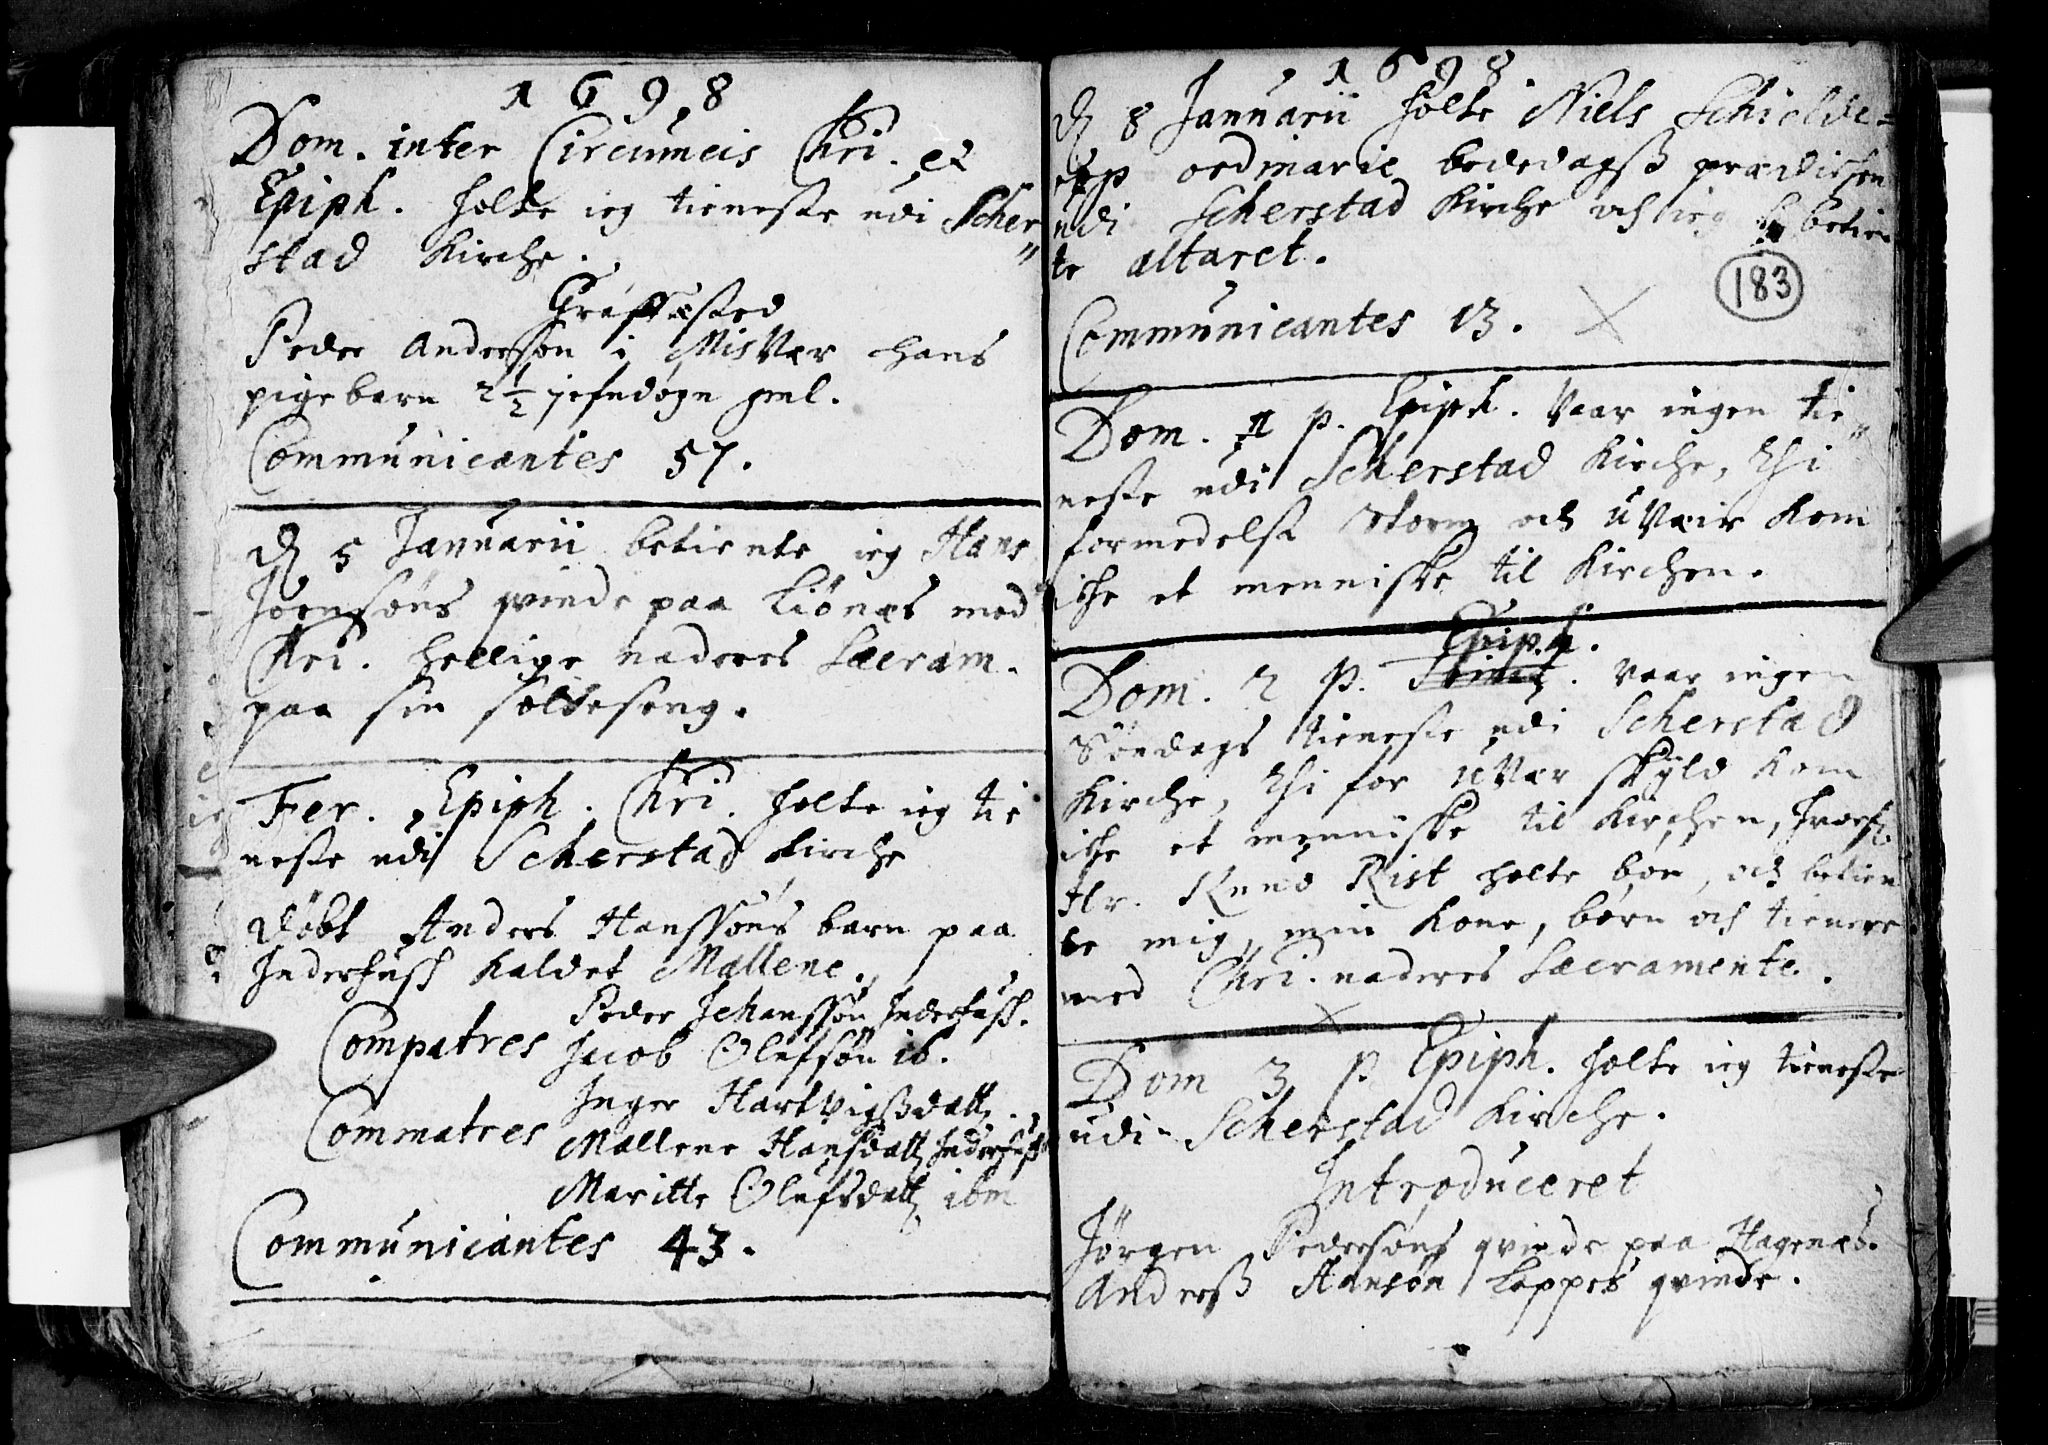 1698
Dom. inter Circumcis Chri. et
Epiph. holte ieg tieneste udi Scher
stad Kirche.
Graffæsted
Peder Andersson i Misvær hans
pigebarn 2½ jefndøgn gml.
Communicantes 57.
D 5 Januarii betiente ieg Hans
Joensøns qvinde paa Liønæs med
Chri. hellige naderes Sacram.
paa sin sotteseng.
Fer. Epiph. Chri. holte ieg tie
neste udi Scherstad Kirche
Døbt Anders Hanssøns barn paa
Inderhuss kaldet Mallene.
Compatres Peder Johanssøn Inderhuss.
Jacob Olufsøn ib.
Commatres Inger Hartvigssdatt.
Mallene Hansdatt Inderhuss
Maritte Olufsdatt ibm
Communicantes 43.
1698.
D 8 Januarii holte Niels Schielde=
rup ordinarie bededagss prædichen
udi Scherstad Kirche och ieg betien
te altaret.
183
Communicantes 13.
Dom. 1 p. Epiph. vaar ingen tie
neste udi Scherstad Kirche, thi
formedelst storm och uvæir kom
iche et menniske til Kirchen.
Epiph.
Dom. 2 p. Trinit. vaar ingen
Søndags tieneste udi Scherstad
Kirche, thi for uvær skyld kom
iche et menniske til Kirchen,
Hr. Knud Rist holte bøn, och betien
te mig, min kone, børn och tienere
med Chri. naderes Sacramente.
Dom 3 p Epiph. holte ieg tieneste
udi Scherstad Kirche.
Introduceret
Jørgen Pedersøns qvinde paa Hagenæs.
Anderss Hansøn Lappes qvinde.